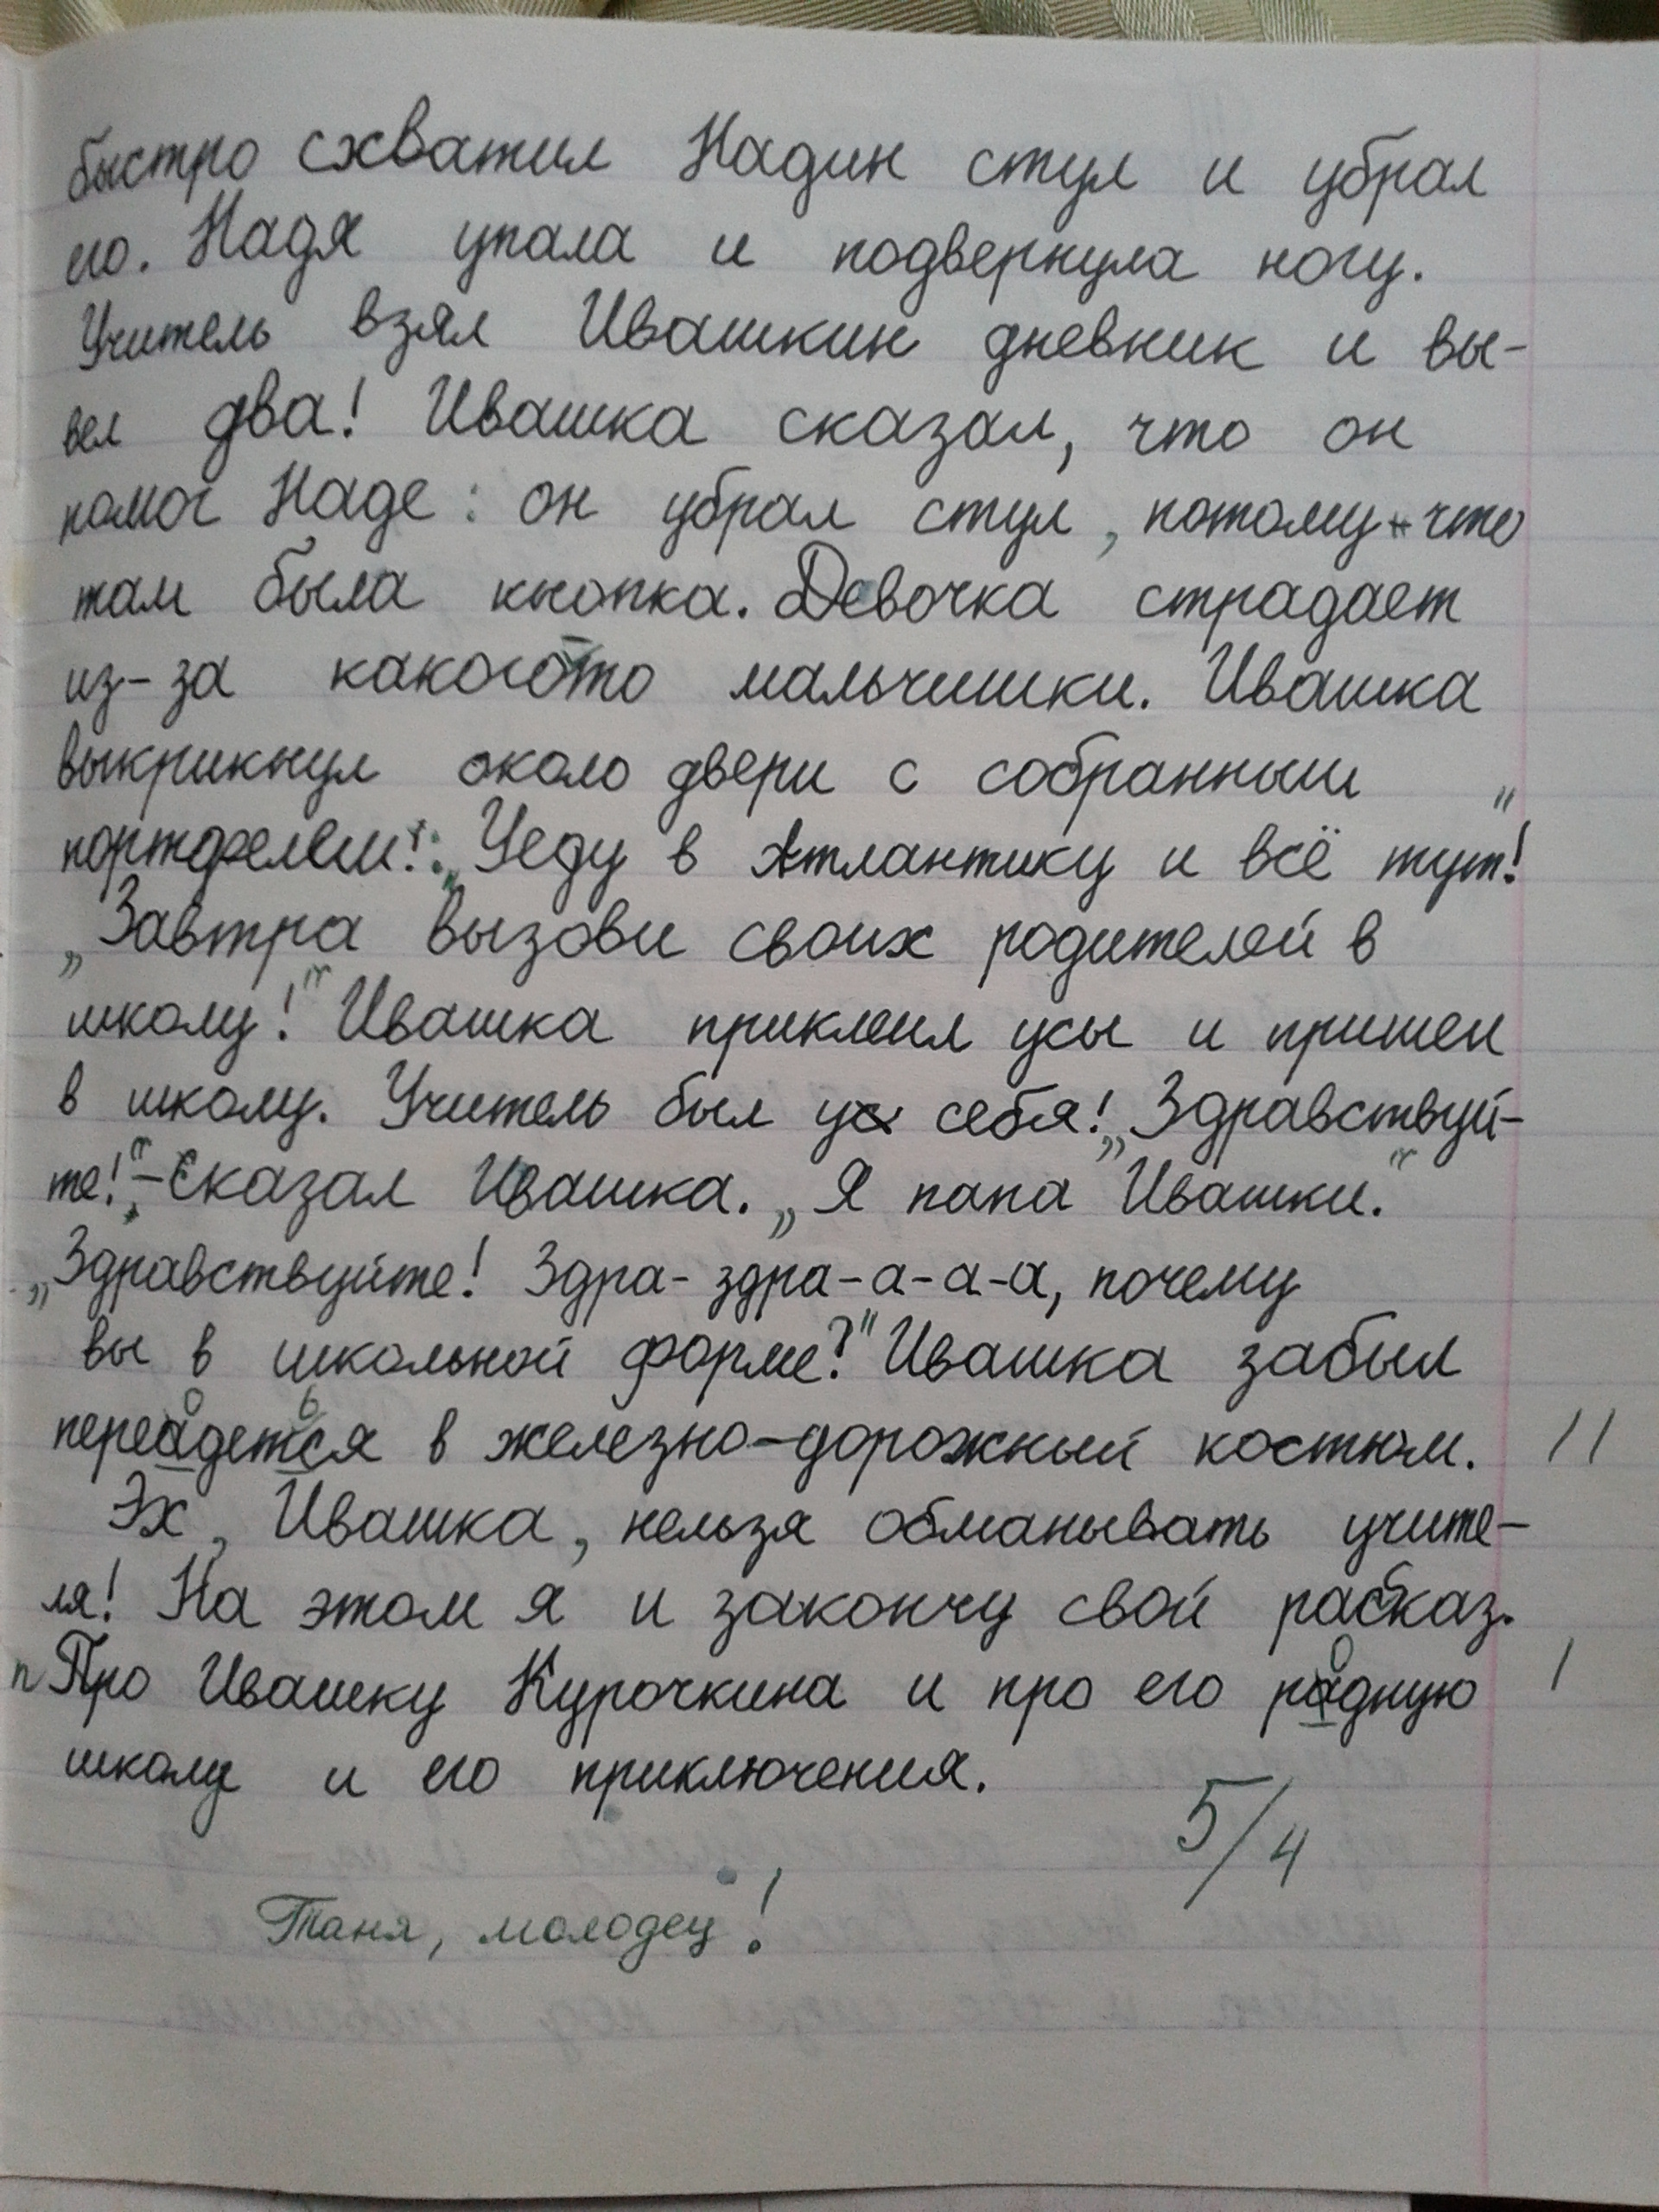 быстро схватил Надин стул и убрал
его. Надя упала и подвернула ногу.
Учитель взял Ивашкин дневник и вы-
вел два! Ивашка сказал, что он
помог Наде: он убрал стул, потому что
там была кнопка. Девочка страдает
из-за какого-то мальчишки. Ивашка
выкрикнул около двери с собранным
портфелем: „Уеду в Атлантику и всё тут!"
„Завтра вызови своих родителей в
школу!" Ивашка приклеил усы и пришел
в школу. Учитель был у себя! „Здравствуй-
те!" - сказал Ивашка. „Я папа Ивашки."
„Здравствуйте! Здра- здра-а-а-а, почему
вы в школьной форме?" Ивашка забыл
переадется в железно-дорожный костюм. //
Эх, Ивашка, нельзя обманывать учите-
ля! На этом я и закончу свой рассказ.
п Про Ивашку Курочкина и про его радную /
школу и его приключения.
5/4
Таня, молодец!